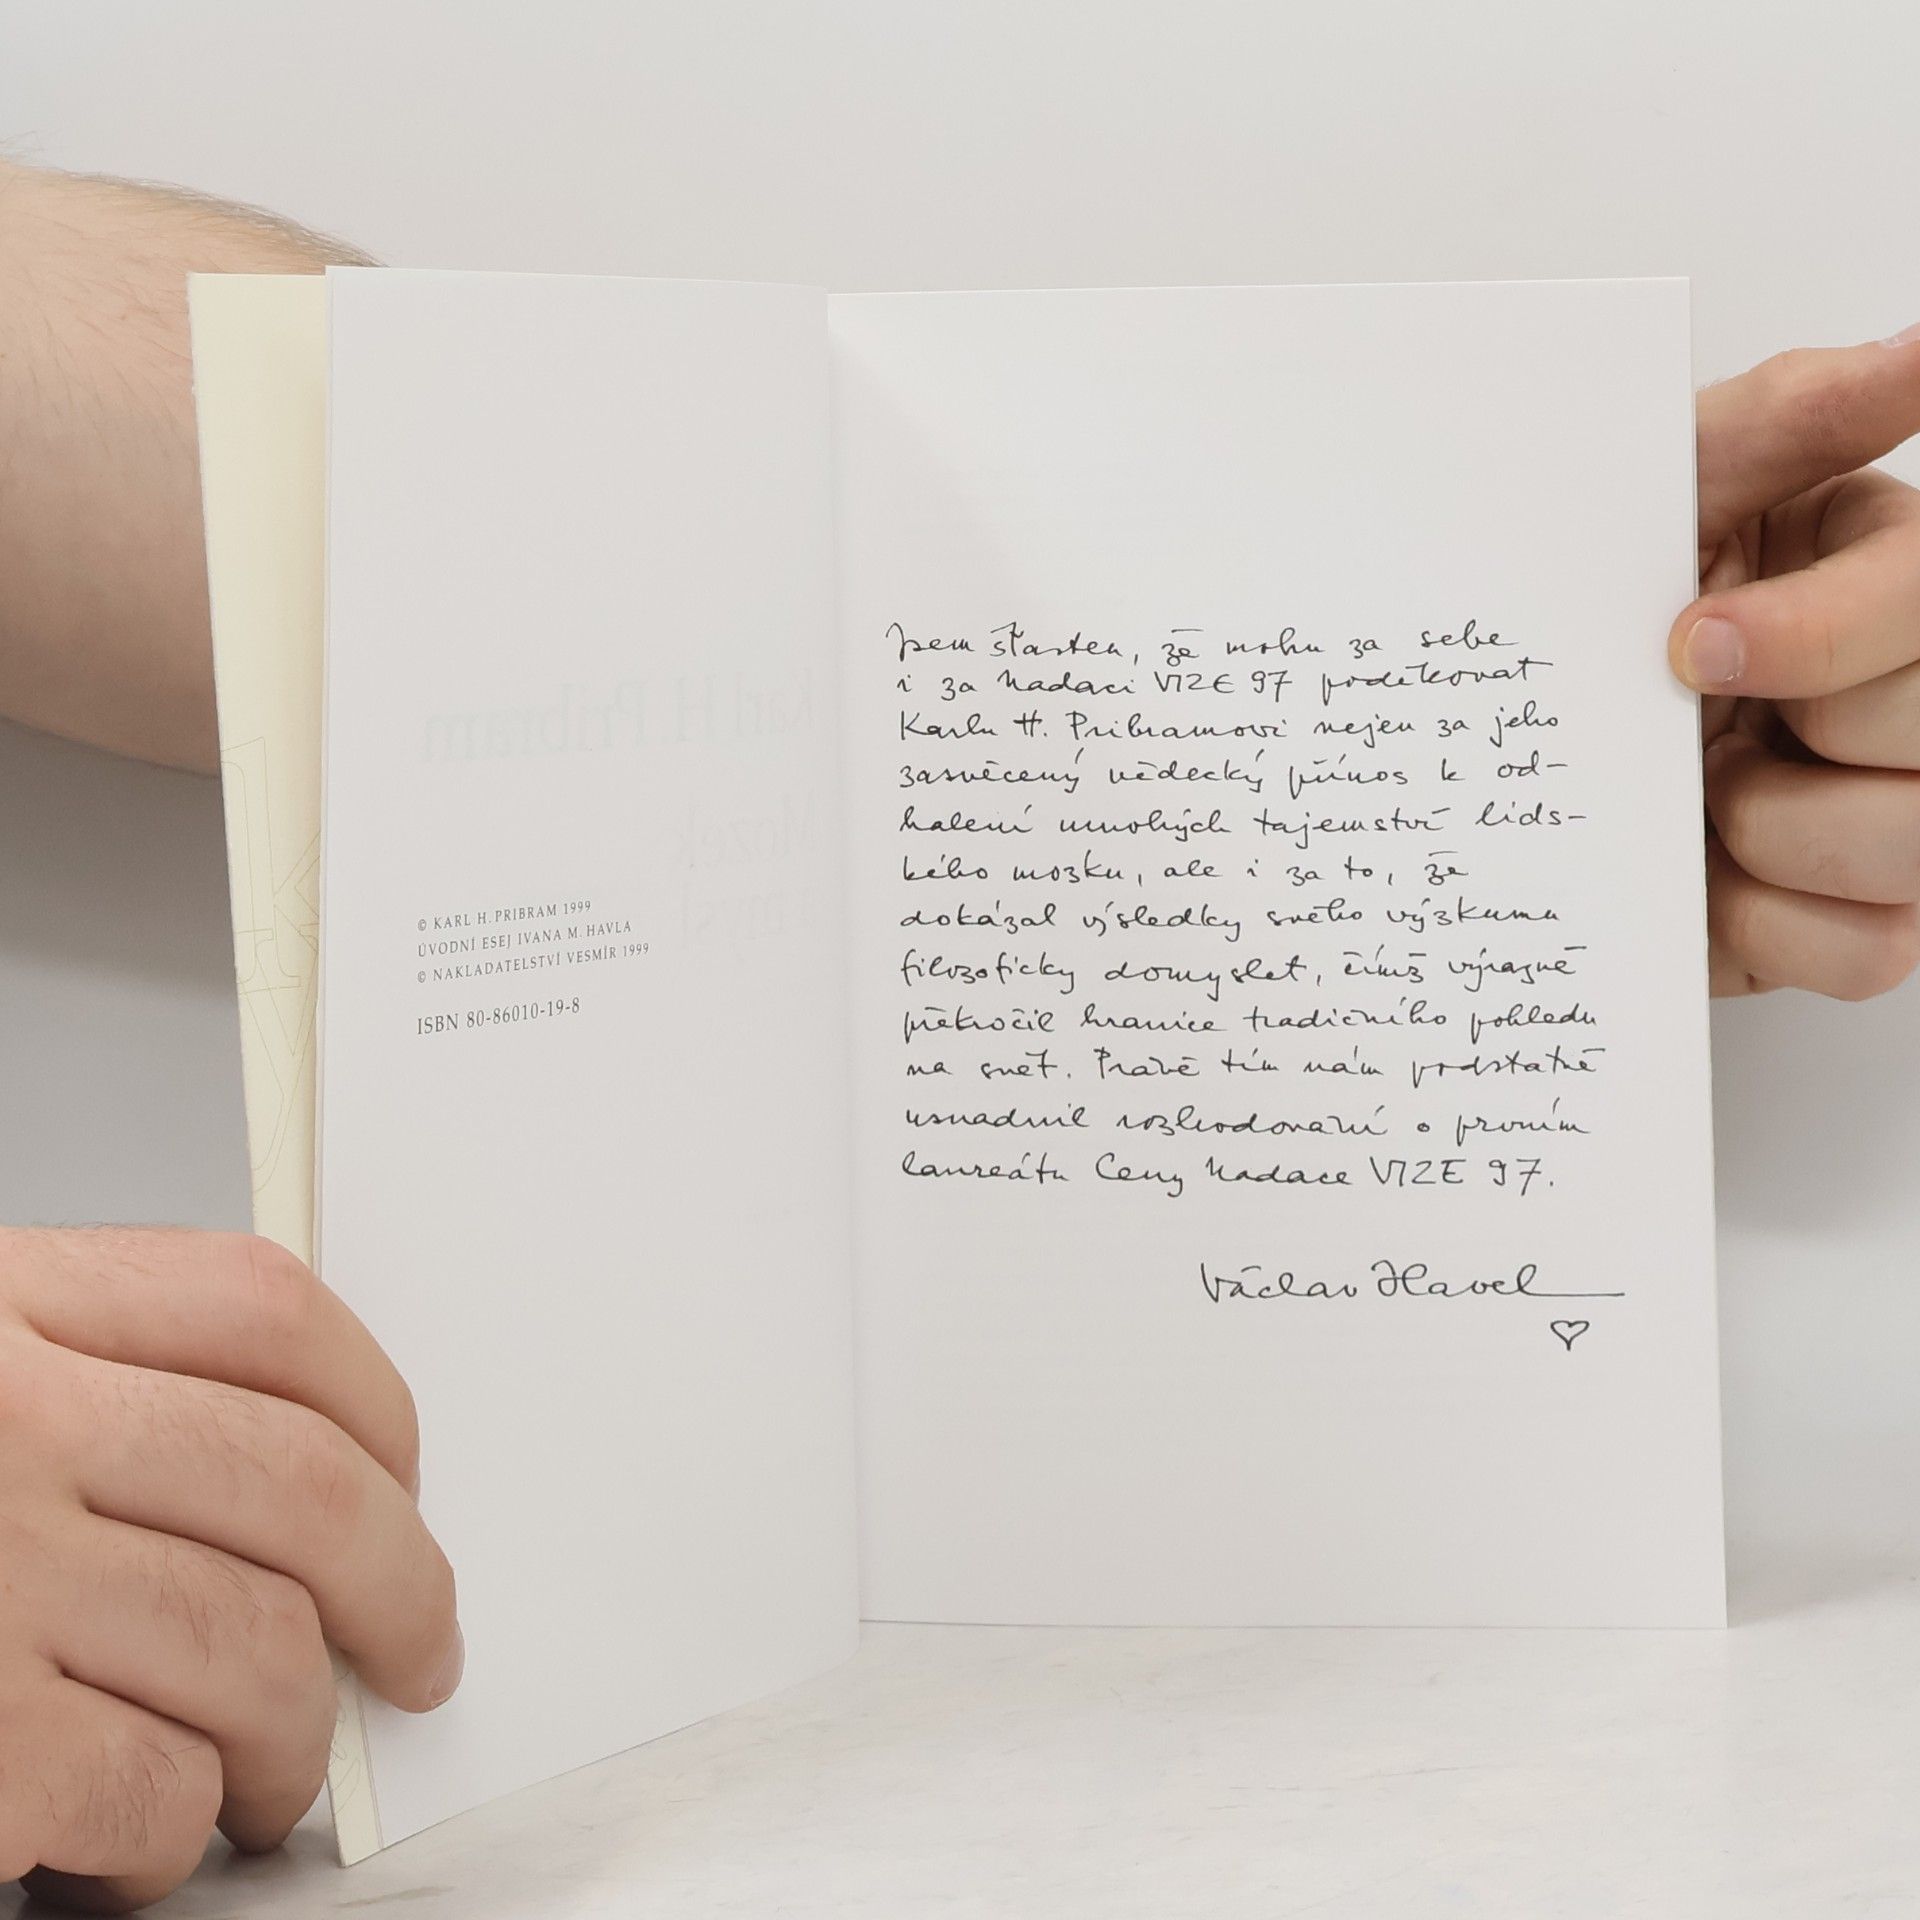 © KARL H. PRIBRAM 1999
ÚVODNÍ ESEJ IVANA M. HAVLA
© NAKLADATELSTVÍ VESMÍR 1999
ISBN 80-86010-19-8
Jsem šťasten, že mohu za sebe
i za Nadaci VIZE 97 poděkovat
Karlu H. Pribramovi nejen za jeho
zasvěcený vědecký přínos k od-
halení mnohých tajemství lids-
kého mozku, ale i za to, že
dokázal výsledky svého výzkumu
filozoficky domyslet, čímž výrazně
překročil hranice tradičního pohledu
na svět. Právě tím nám podstatně
usnadnil rozhodování o prvním
laureátu Ceny Nadace VIZE 97.
Václav Havel